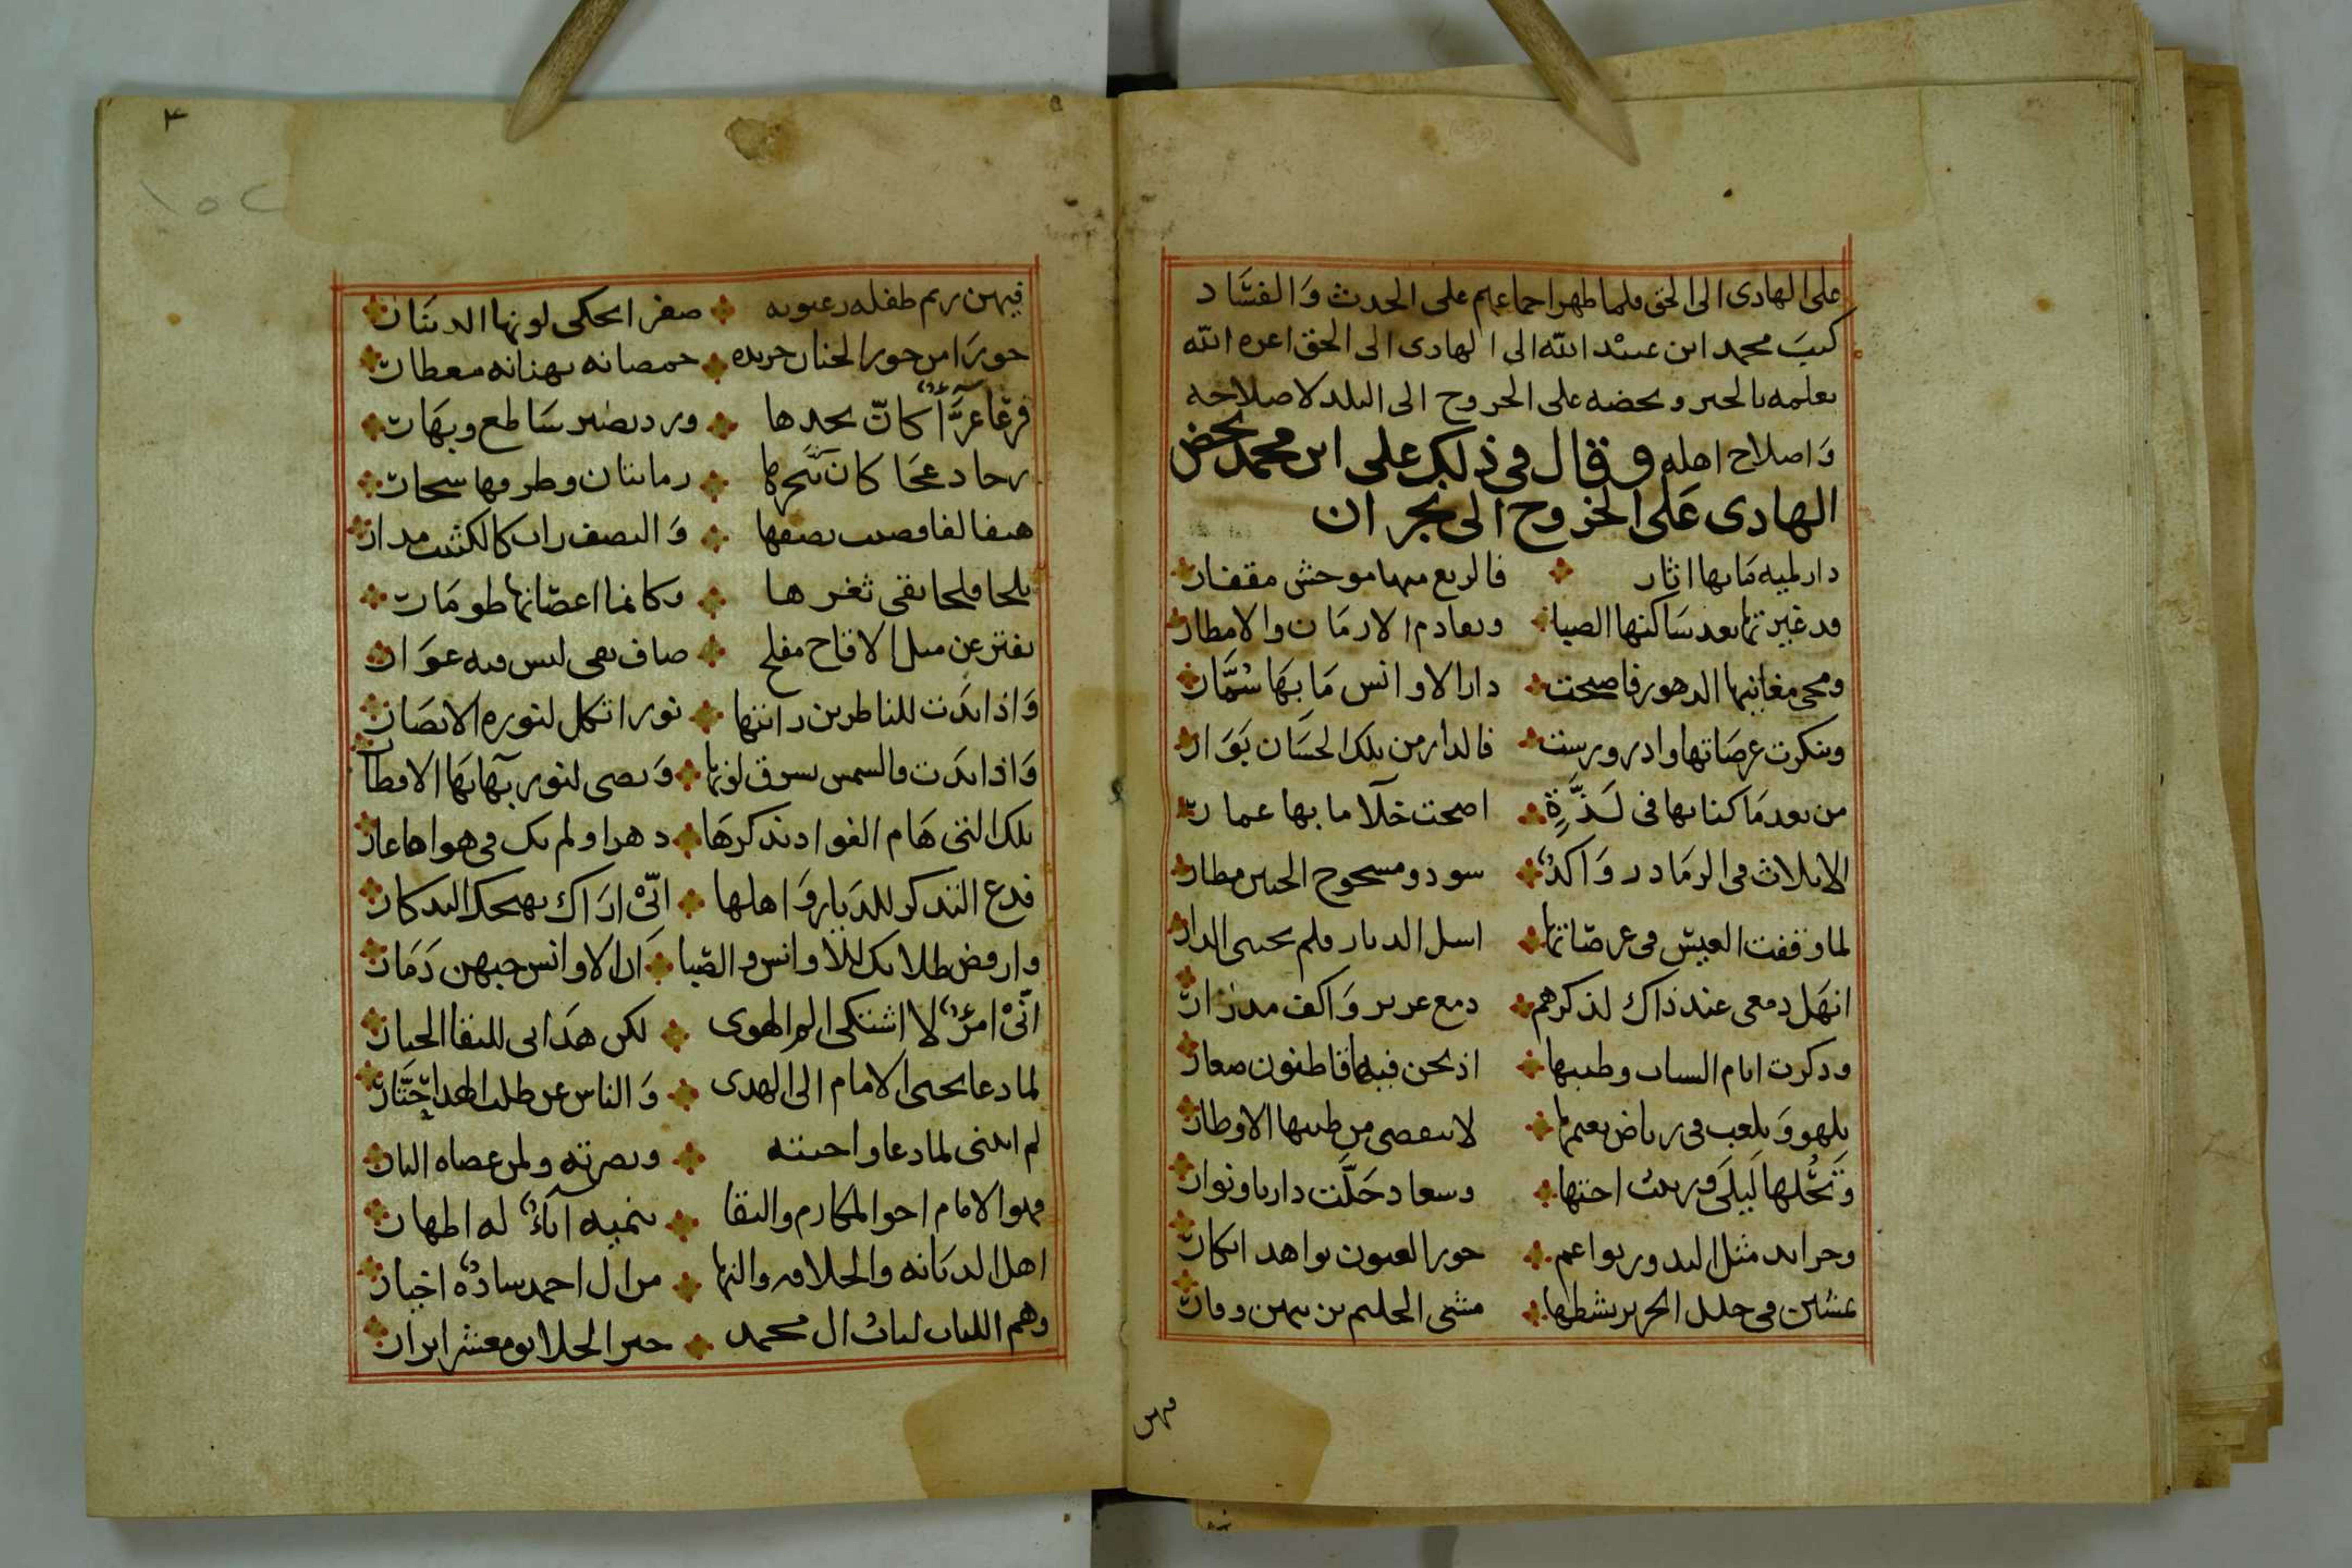 على الهادى الى الحق فلما ظهر اجماعهم على الحدث وَالفسَاد
كتبَ محمد ابن عبيْد الله الى الهادى الى الحق اعزه الله
يعلمه بالخبر ويحضه على الخروج الى البلد لاصلاحه
وَاصلاح اهله وقال فى ذلك على ابن محمد يحض
الهادى عَلى الخروج الى نجران
دار لميه مَا بها اثار فالربع منها موحش مقفار
قد غيرتها بعد سَاكنها الصبا وتقادم الازمَان والامطار
ومحى مغانيها الدهور فاصبحت دار الاوانس مَا بهَا سُمَّار
وتنكرت عرصَاتها وادرورست فالدار من تلك الحسَان بَوَار
من بعد مَا كنا بها فى لَذَّةٍ اضحت خلآ ما بها عمار
الا ثلاث فى الرمَاد رَوَاكدٌ سود ومسحوج الجبين مطار
لما وقفت العيش فى عرصَاتها اسل الديار فلم تجبنى الدار
انهَل دمعى عند ذاك لذكرهم دمع غزير وَاكف مدرار
وذكرت ايام الشباب وطيبها اذ نحن فيها قاطنون صغار
نلهو وَنلعب فى رياض نعيمها لا تنقضى من طيبها الاوطار
وَتَحُلها لَيلَى وزينب اختها وسعاد حَلَّت دارنا ونوار
وخرايد مثل البدور نواعم حور العيون نواهد ابكار
مشى الحليم بن بهن وقار
فيهن
فيهن ريم طفله رعبوبه صفرا يحكى لونها الدينَار
حورَا من حور الجنان خريده خمصانه بهنانه معطار
فرعَا غرَّآءُ كانّ بخدها ورد نضير سَاطع وبهَار
زجا دعجَا كانَ بنَحرها رمانتان وطرفها سحار
هيفا لفا قضيب نصفها وَالنصف راب كالكثيب مدار
بلجا فلجا نقى ثغرها وكانما اعضانها طومَار
يفتر عن مثل الاقاح مفلج صاف نقى ليس فيه عوَار
وَاذا بدَت للناظرين رائتها نورا تكل لنوره الابصَار
وَاذا بدَت فالشمس يشرق لونها وَتضى لنور بهآئهَا الاقطار
تلك التى هَام الفواد بذكرهَا دهرا ولم يك فى هواها عار
فدع التذكر للديَار وَاهلها انّىْ ارَاك يهيجك التذكار
وارفض طلابك للاوانس والصّبا ان الاوانس حبهن دَمَار
انّىْ امرُؤٌ لا اشتكى الم الهوى لكن هدَانى للتقا الجبار
لما دعا يحيى الامام الى الهدى وَالناس عن طلب الهدا حُيَّار
لم اننى لما دعا واجبته ونصرته ولمن عصاه النار
فهو الامام اخو المكارم والتقا تنميه ابَآءٌ له اطهار
اهل الديَانه والخلافه والنها من ال احمد سادُهٌ اخيار
وهم اللباب لبابُ ال محمد خير الخلايق معشر ابرار